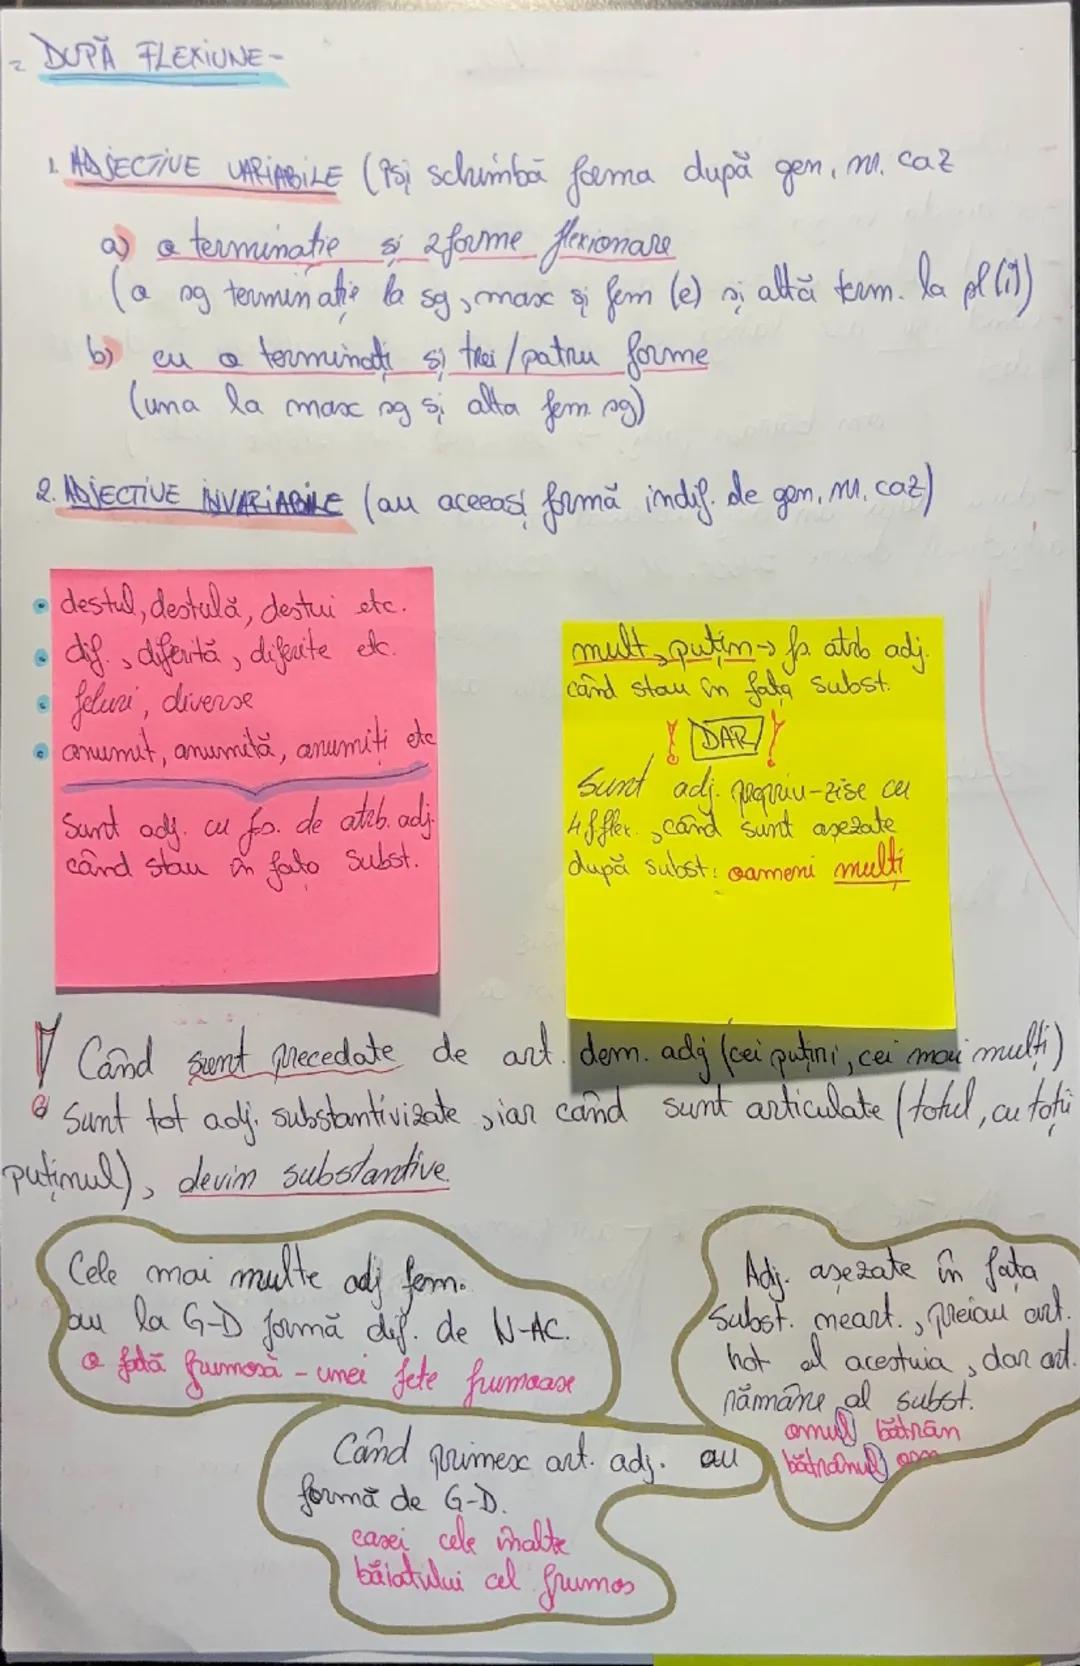 - DUPĂ FLEXIUNE -
1. ADJECTIVE VARIABILE (Își schimbă forma după gen, nr. caz
a) o terminație și 2 forme flexionare
(o sg terminație la sg, masc și fem (e) și altă term. la pl (i))
b) cu o terminații și trei/patru forme
(una la masc sg și alta fem. sg)
2. ADJECTIVE INVARIABILE (au aceeași formă indif. de gen, nr, caz)
• destul, destulă, destui etc.
• dif., diferită, diferite etc.
• feluri, diverse
• anumit, anumită, anumiți etc
Sunt adj. cu fs. de atrb. adj.
când stau în fața subst.
mult, puțin → fs. atrb adj.
când stau în fața subst.
! DAR !
Sunt adj. propriu-zise cu
4 f flex., când sunt așezate
după subst: oameni mulți
! Când sunt precedate de art. dem. adj (cei puțini, cei mai mulți)
sunt tot adj. substantivizate, iar când sunt articulate (totul, cu toții
puținul), devin substantive.
Cele mai multe adj fem.
au la G-D formă dif. de N-AC.
o fată frumosă - unei fete frumoase
Adj. așezate în fața
subst. neart., preiau art.
hot al acestuia, dar art.
rămâne al subst.
omul bătrân
bătrânul om
Când primesc art. adj. au
formă de G-D.
casei cele înalte
băiatului cel frumos